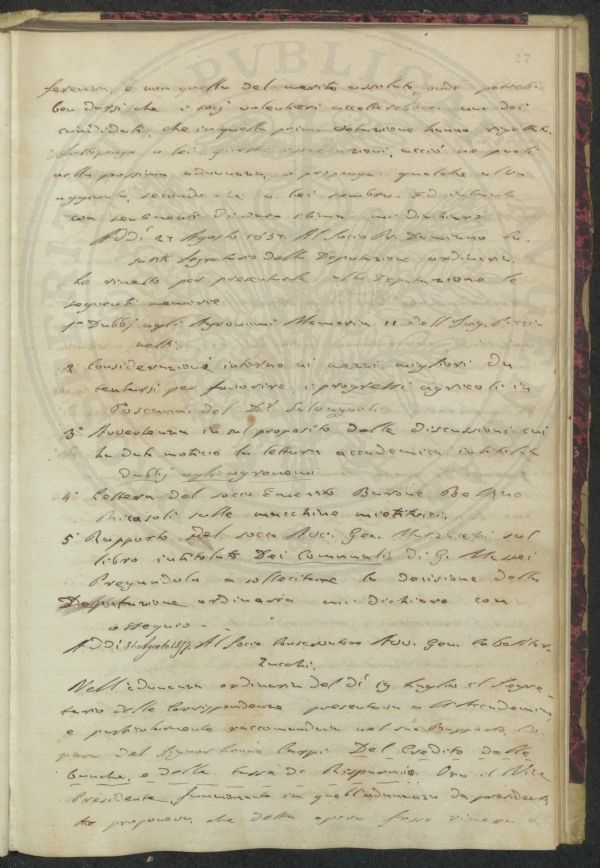 27
ferenza, e non quella del merito assoluto, onde potrebbe
ben darsi che i socj volentieri accetterebbero uno dei
candidati, che in questa prima votazione hanno rigettati.
a lei queste osservazioni, acciò ne parli
nella prossima adunanza, e proponga qualche altra
aggiunta, secondo che a lei sembra. Ed intanto
con sentimenti di vera stima mi dichiaro
Addì 27 Agosto 1857. Al Socio Pr. Damiano Ca-
santi Segretario della Deputazione ordinaria.
Le rimetto per presentarle alla Deputazione le
seguenti memorie
1º Dubbj agli Agronomi Memoria II dell'Ing.
2 Considerazioni intorno ai mezzi migliori da
tentarsi per favorire i progressi agricoli in
Toscana, del Dr. Salvagnoli
3º Avvertenza in sul proposito delle discussioni cui
ha dato motivo la lettura accademica intitolata
Dubbj agli agronomi
4º Lettera del socio Emerito Barone Bettino
Ricasoli sulle macchine mietitrici.
5º Rapporto del socio Avv. Gen. sul
libro intitolato Dei Comunali di G.
Pregandola a sollecitare la decisione della
Deputazione ordinaria mi dichiaro con
ossequio
Addì 31 Agosto 1857. Al Socio Conservatore Avv. Gen.
Nell'adunanza ordinaria del dì 19 Luglio il Segre-
tario delle Corrispondenze presentava all'Accademia,
e particolarmente raccomandava nel suo Rapporto, l'o-
pera del Signor Leone Carpi Del Credito delle
banche, e delle casse di Risparmio. Ora il Vice
Presidente funzionante in quell'adunanza da presidente
proponeva che detta opera fosse rimessa a